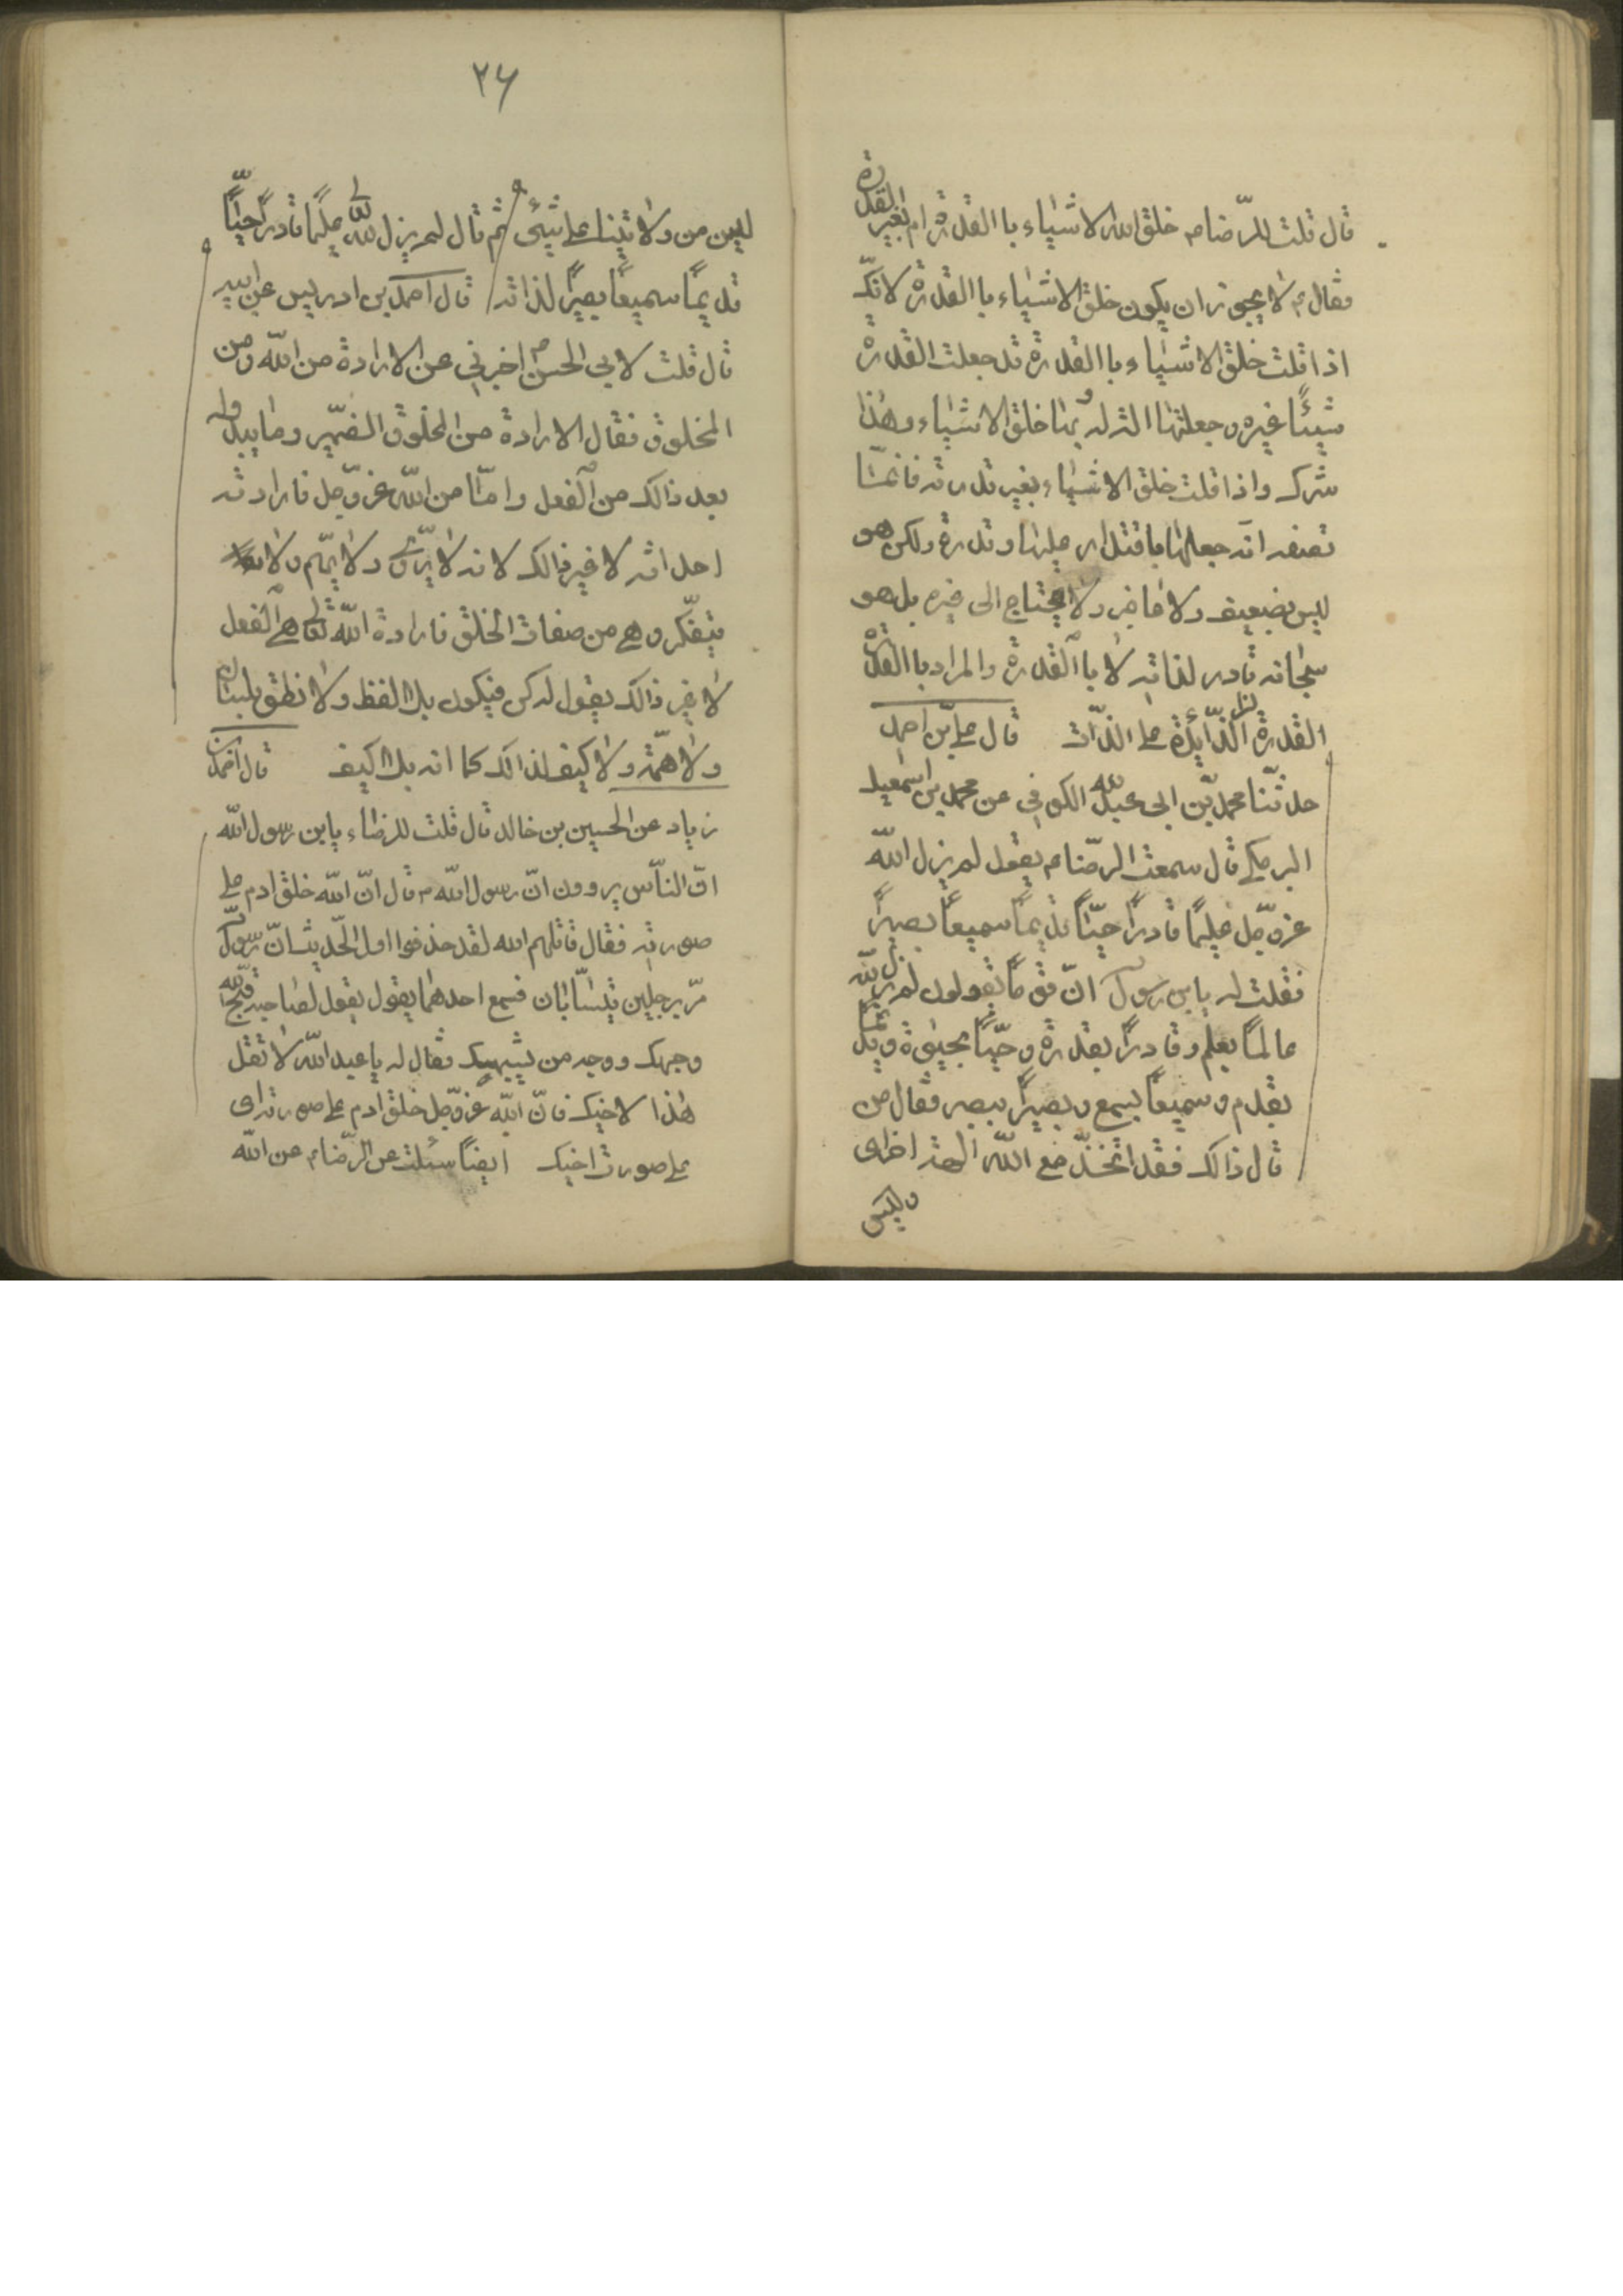 قال قلت للرّضام خلق الله الاشياء با القدرة ام بغير القدرة
فقال م لا يجوز ان يكون خلق الاشياء با القدرة لانّك
اذا قلت خلق الاشياء با القدرة قد جعلت القدرة
شيئًا غيره وجعلتها الة له بها خلق الاشياء وهذا
شرك واذا قلت خلق الاشياء بغير قدرته فانمّا
تصفه انّه جعلها باقتدار عليها وقدرة ولكن هو
ليس بضعيف ولا عاجز ولا يحتاج الى غيره بل هو
سبحانه قادر لذاته لا با القدرة والمراد با القدرة
القدرة الزّائدة على الذّات قال على بن احمد
حدثنّا محمد بن ابى عبد الله الكوفى عن محمد بن اسمعيل
البرمكى قال سمعت الرّضا م يقول لم يزل الله
عزّ وجّل عليمًا قادرًا حيّاً قديمًا سميعاً بصيرًا
فقلت له يابن رسول انّ قومًا يقولون لم يزل الله
عالمًا بعلم وقادرًا بقدرة وحيّاً بحيوة وقديمًا
بقدم وسميعاً بسمع وبصيرًا ببصر فقال من
قال ذالك فقد اتخذّ مع الله الهة اخرى
وليس
٢٦
ليس من ولايتنا على شئ ثم قال لم يزل الله عليمًا قادرًا حيّاً
قديمًا سميعاً بصيرًا لذاته قال احمد بن ادريس عن ابيه
قال قلت لابى الحسن م اخبرنى عن الارادة من الله ومن
المخلوق فقال الارادة من المخلوق الضّمير وما يبدو له
بعد ذالك من الفعل وامّا من الله عزّ وجّل فارادته
احداثه لا غير ذالك لانه لا يرّوى ولا يهّم ولا
يتفّكر وهى من صفات الخلق فارادة الله تعالى هى الفعل
لا غير ذالك يقول له كن فيكون بلا لفظ ولا نطق بلسان
ولا همّة ولا كيف لذالك كما انه بلا كيف قال احمد بن
زياد عن الحسين بن خالد قال قلت للرضاء يابن رسول الله
انّ النّاس يروون انّ رسول الله م قال انّ الله خلق ادم على
صورته فقال قاتلهم الله لقد حذفوا اول الحّديث انّ رسول
مرّ برجلين يتسّابان فسمع احدهما يقول يقول لصاحبه قبّح الله
وجهك ووجه من يشبهك فقال له يا عبد الله لا تقل
هذا لاخيك فانّ الله عزّ وجّل خلق ادم على صورته اى
على صورت اخيك ايضًا سئلت عن الرّضام عن الله